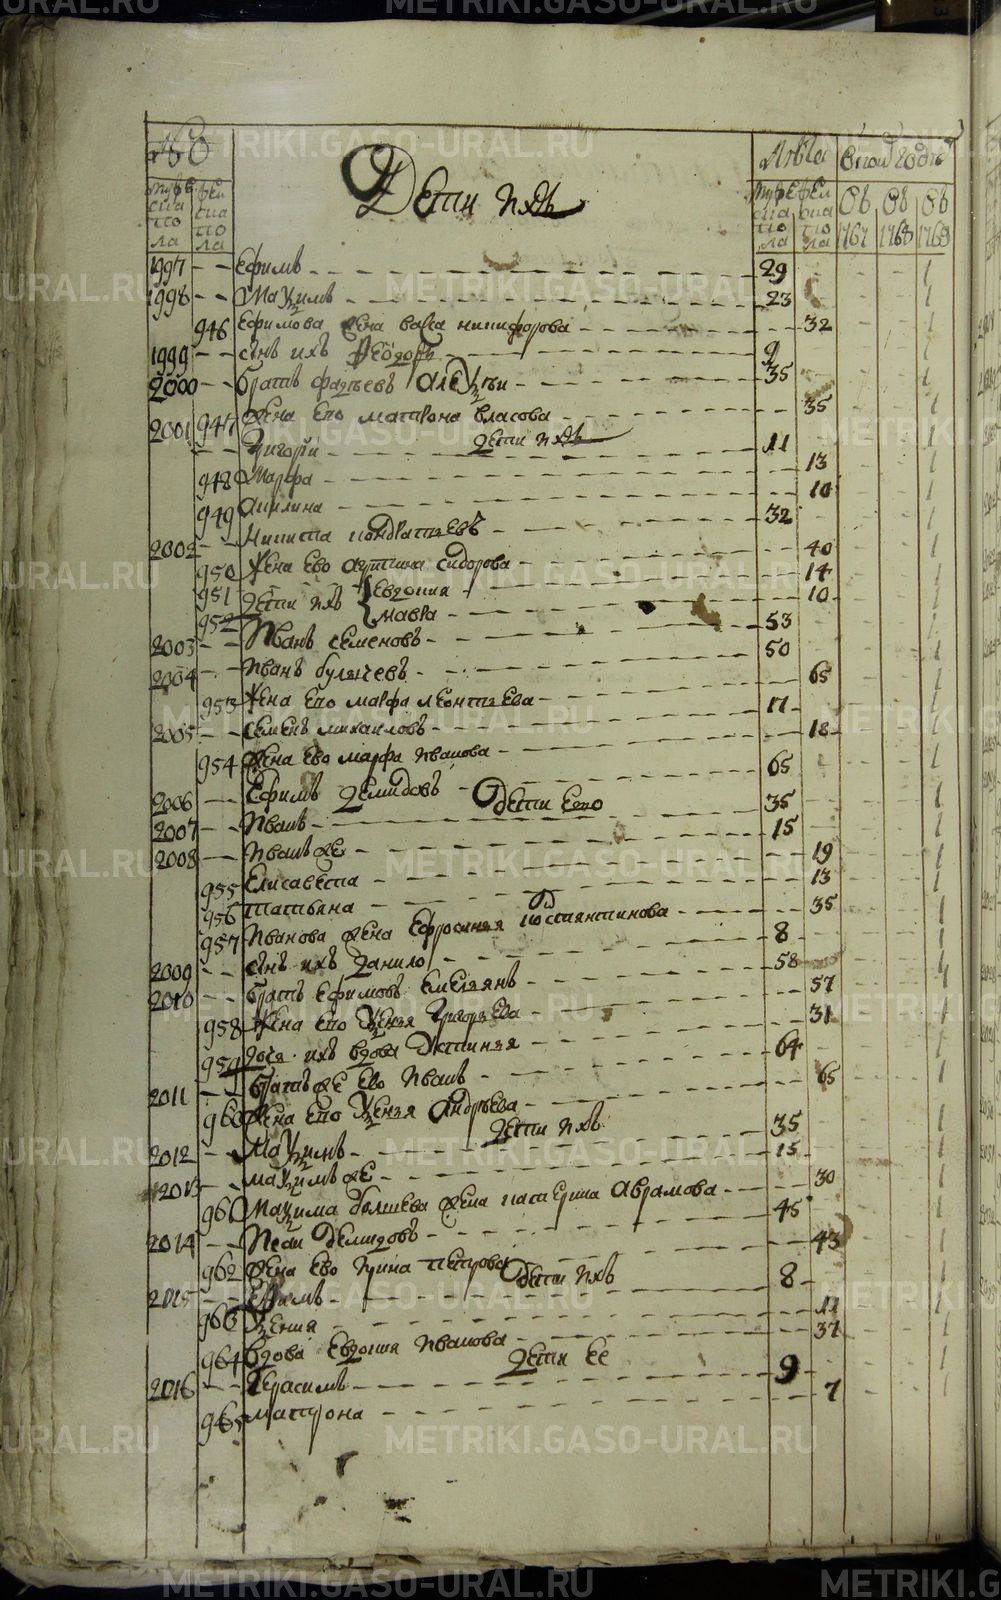 METRIKI.GASO-URAL.RU
№
Дети ихъ
Лѣта
мужеска пола
женска пола
въ 1767
въ 1768
въ 1769
1997 Ефимъ 29 1
1998 Маѯимъ 23 1
946 Ефимова жена васса никифорова 32 1
1999 сынъ ихъ Ѳеодоръ 9 1
2000 братъ фадѣевъ алеѯѣи 35 1
947 жена ево матрона власова 35 1
дети ихъ
2001 Григорей 11 1
948 Марфа 13 1
949 Акилина 10 1
2002 Никита кондратьевъ 32 1
950 Жена ево сидорова 40 1
951 дети ихъ Евдокия 14 1
952 мавра 10 1
2003 Иванъ семеновъ 53 1
2004 Иванъ 50 1
953 Жена ево марфа леонтьева 65 1
2005 семенъ михаиловъ 17 1
954 жена ево марфа иванова 18 1
2006 Ефимъ демидовъ 65 1
дети ево
2007 Иванъ 35 1
2008 Иванъ же 15 1
955 Елисавета 19 1
956 татьяна 13 1
957 Иванова жена Ефросинья костянтинова 35 1
2009 сынъ ихъ данило 8 1
2010 братъ ефимовъ емельянъ 58 1
958 Жена ево Ѯенья Григорьева 57 1
959 дочь ихъ вдова устинья 31 1
2011 братъ же ево Иванъ 64 1
960 жена ево Ѯенья Андрѣева 65 1
дети ихъ
2012 Маѯимъ 35 1
2013 маѯимъ же 15 1
961 маѯима болшева жена катерина Аврамова 30 1
2014 демидовъ 45 1
962 жена ево Ирина петрова 43 1
дети ихъ
2015 Ефимъ 8 1
963 Ѯения 11 1
964 вдова Евдокия Иванова 37 1
дети ее
2016 Герасимъ 9 1
965 матрона 7